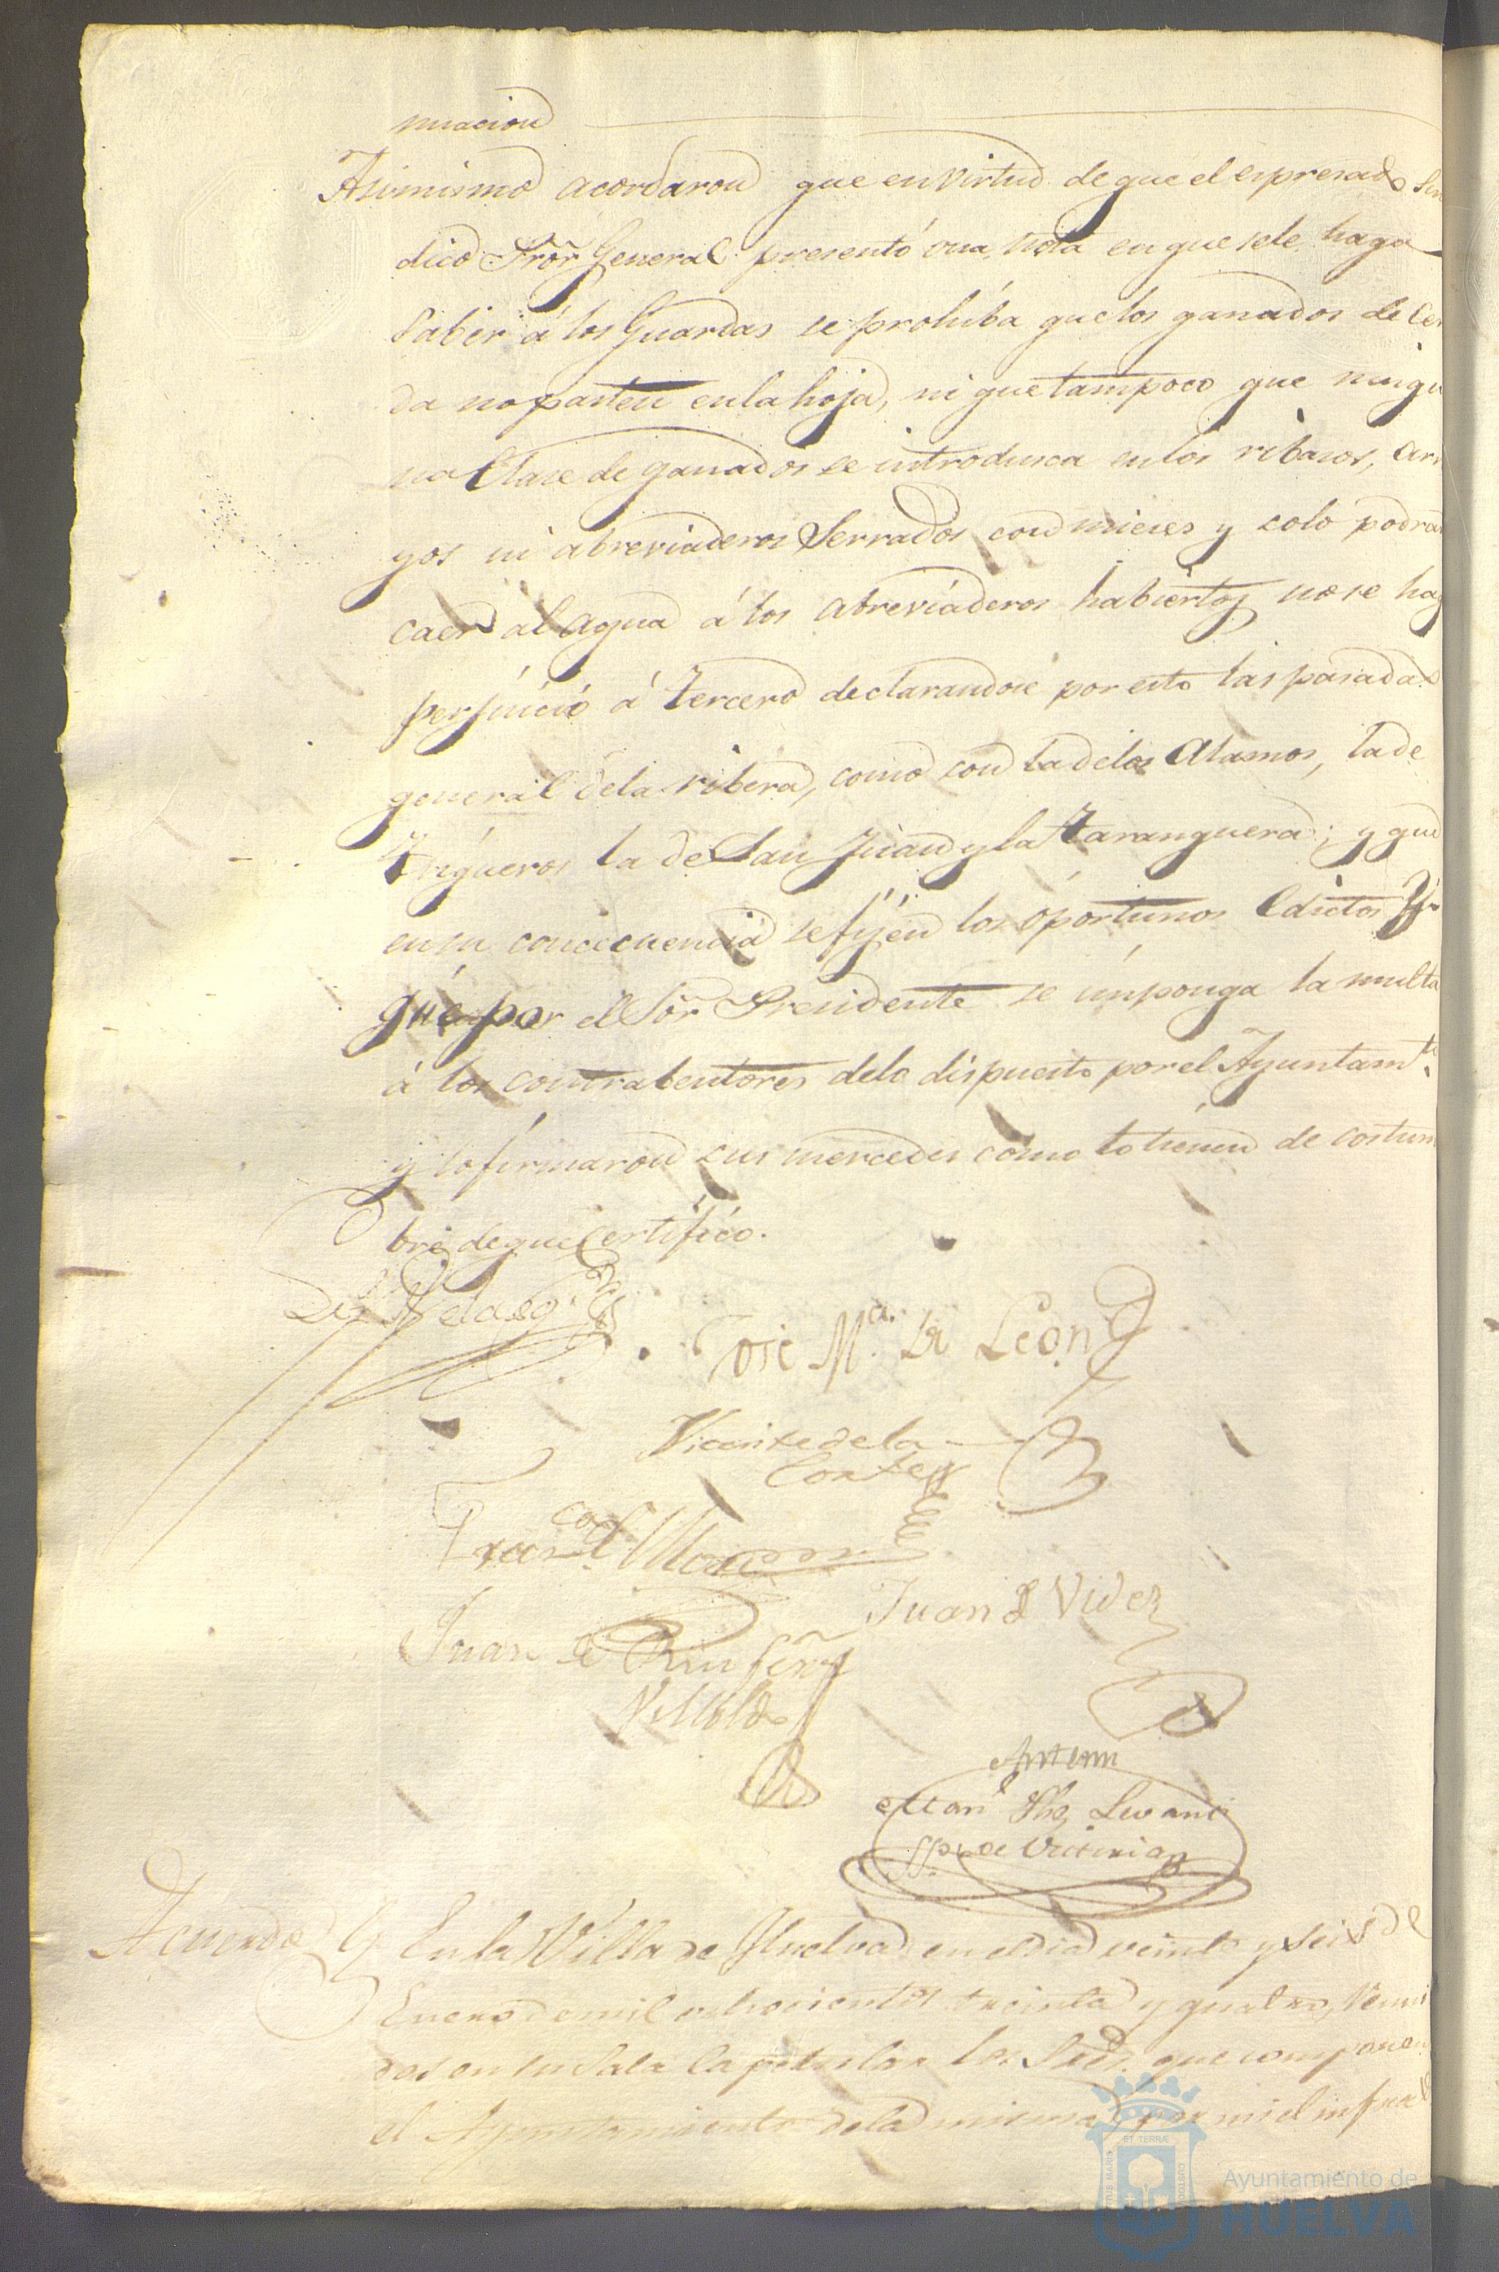 nuacion
Asimismo acordaron que en virtud de que el espresado Sin
dico Pror General presentó una nota en que se le haga
saber á los Guardas se prohiba que los ganados de Cer
da no pasten en la hoja, ni que tampoco que ningu
na Clase de ganados se introdusca en los ribasos, arr
yos ni abreviaderos Serrados con mieses y solo podran
caer al agua á los abreviaderos habiertos no se hag
perjuicio á tercero declarandose por esto las pasadas
general de la ribera, como son la de los Alamos, la de
Trigueros la de San Juan y la Taranguera; y que
en su concecuencia se fijen los oportunos Edictos y
que por el Sor Presidente se imponga la multa
á los contrabentores de lo dispuesto por el Ayuntamto
y lo firmaron sus mercedes como lo tienen de costum
bre de que Certifico.
José Ma. de Leon
Vicente de la
Corte
Franco
Juan de Videz
Juan de
Villolde
Ante mi
Manl
Acuerdo En la Villa de Huelva en el dia veinte y seis de
Enero de mil ochocientos treinta y quatro, Reuni
dos en su Sala Capitular los Sres que componen
el Ayuntamiento de la misma por mi el infraes
SALUTIS MARIS
ET TERRÆ
CUSTODIA
Ayuntamiento de
HUELVA